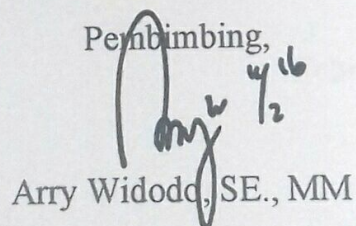 Pembimbing,
Arry Widodo, SE., MM